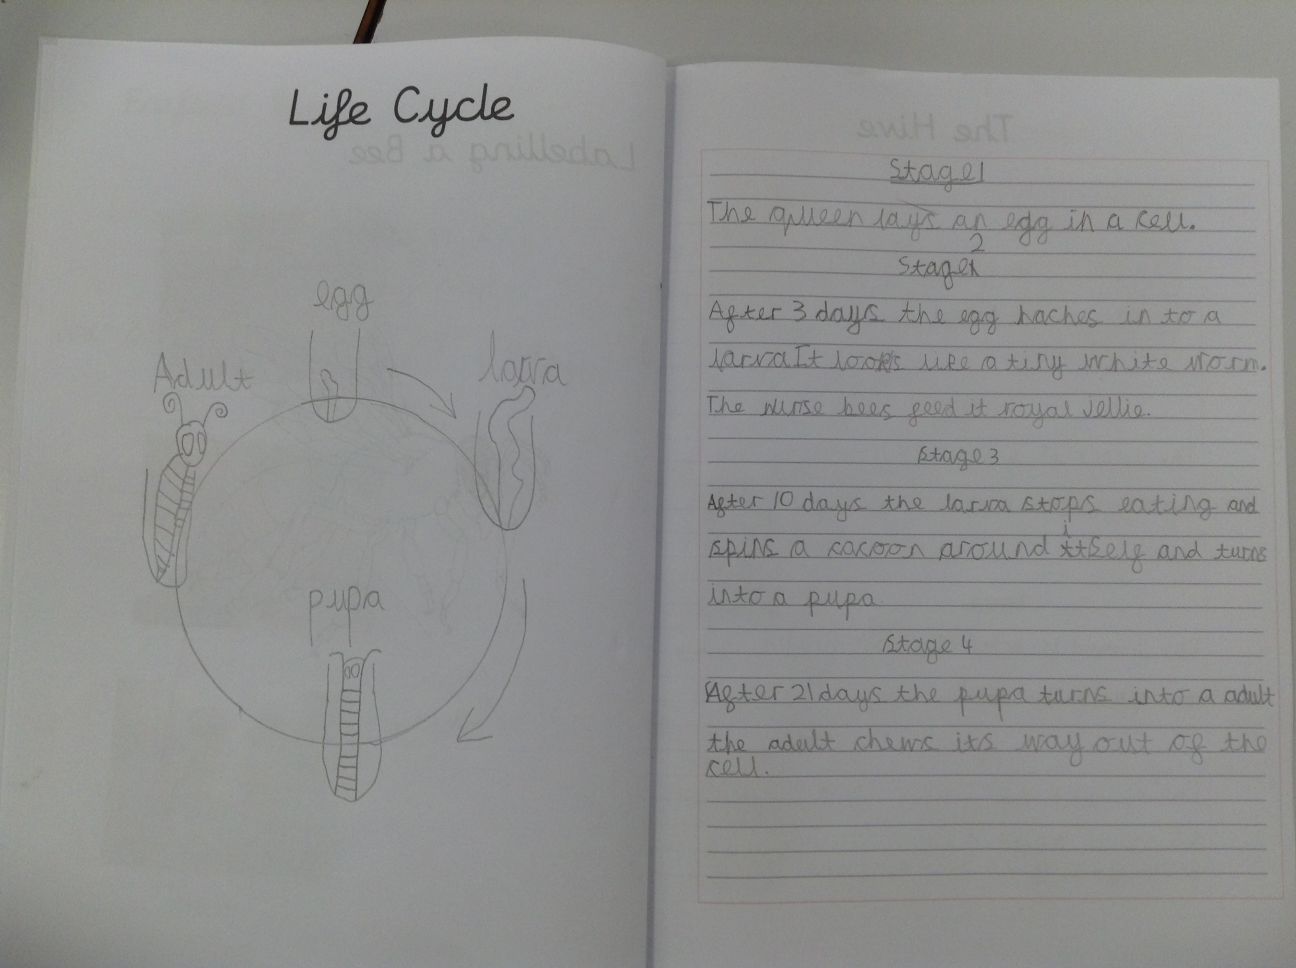 Life Cycle
egg
Adult
larva
pupa
The Hive
Labelling a Bee
Stage 1
The queen lays an egg in a cell.
2
Stage
After 3 days the egg haches in to a
larva It looks like a tiny white worm.
The nurse bees feed it royal Jellie.
Stage 3
After 10 days the larva stops eating and
spins a cacoon around itself and turns
into a pupa
Stage 4
After 21 days the pupa turns into a adult
the adult chews its way out of the
cell.